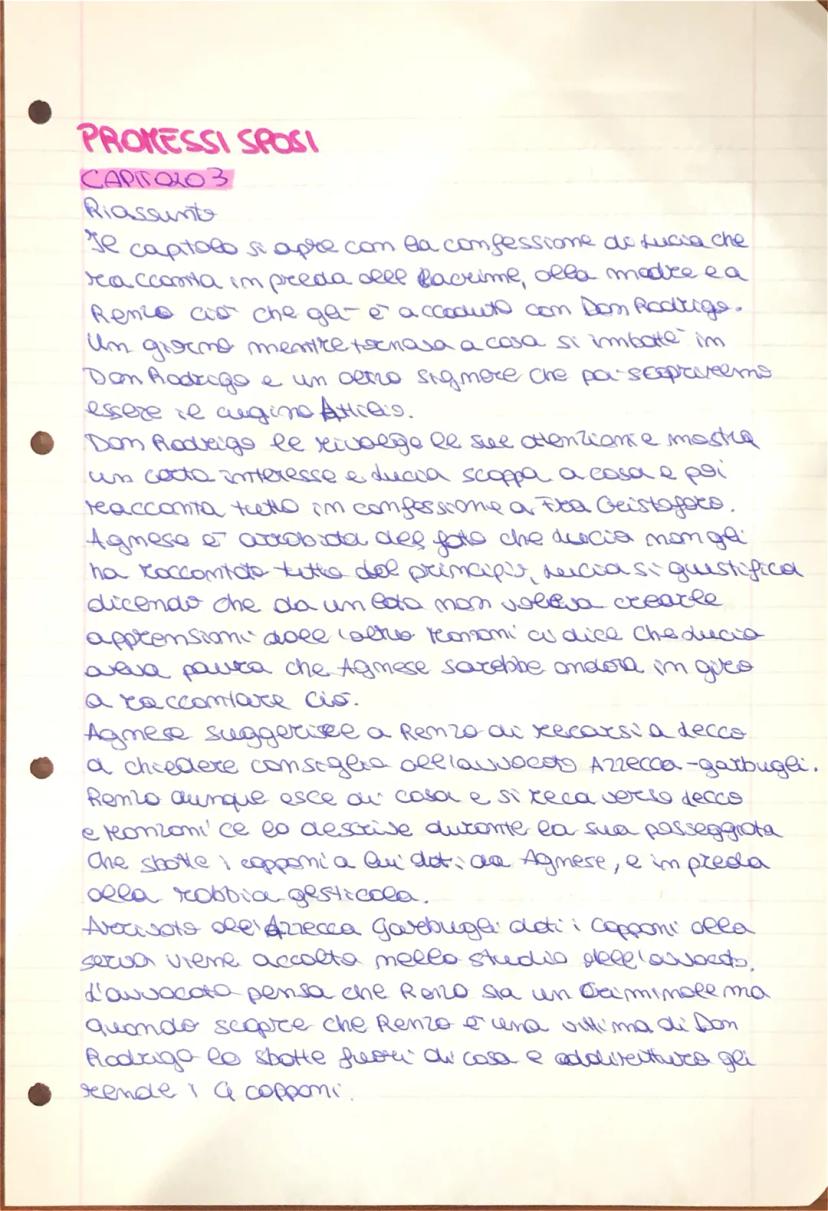 PROMESSI SPOSI
CAPITOLO 3
Riassunto
Il capitolo si apre con la confessione di Lucia che
racconta in preda alle lacrime, alla madre e a
Renzo ciò che gli è accaduto con Don Rodrigo.
Un giorno mentre tornava a casa si imbatè in
Don Rodrigo e un altro signore che poi scopriremo
essere il cugino Attilio.
Don Rodrigo le rivolge le sue attenzioni e mostra
un certo interesse e Lucia scappa a casa e poi
racconta tutto in confessione a Fra Cristoforo.
Agnese è arrabiata del fatto che Lucia non gli
ha raccontato tutto dal principio, Lucia si giustifica
dicendo che da un lato non voleva crearle
apprensioni dall'altro Manzoni ci dice che Lucia
aveva paura che Agnese sarebbe andata in giro
a raccontare ciò.
Agnese suggerisce a Renzo di recarsi a Lecco
a chiedere consiglio all'avvocato Azzecca-garbugli.
Renzo dunque esce di casa e si reca verso Lecco
e Manzoni ce lo descrive durante la sua passeggiata
che sbatte i capponi a lui dati da Agnese, e in preda
alla rabbia gesticola.
Arrivato all'Azzecca Garbugli dati i capponi alla
serva viene accolto nello studio dell'avvocato.
L'avvocato pensa che Renzo sia un criminale ma
quando scopre che Renzo è una vittima di Don
Rodrigo lo sbatte fuori di casa e addirittura gli
rende i 4 capponi.